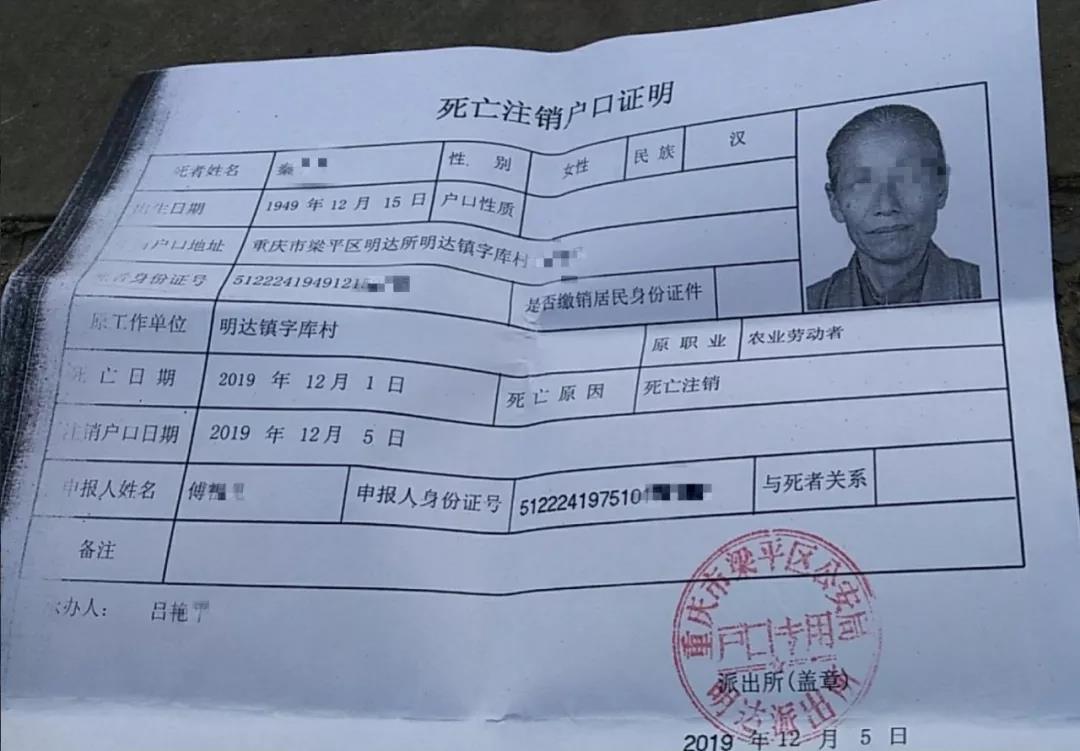 死亡注销户口证明
死者姓名 秦 性别 女性 民族 汉
出生日期 1949 年 12 月 15 日 户口性质
户口地址 重庆市梁平区明达所明达镇字库村
身份证号 51222419491215 是否缴销居民身份证件
原工作单位 明达镇字库村 原职业 农业劳动者
死亡日期 2019 年 12月 1 日 死亡原因 死亡注销
注销户口日期 2019 年 12月 5 日
申报人姓名 傅 申报人身份证号 512224197510 与死者关系
备注
承办人: 吕艳
重庆市梁平区公安局
户口专用
派出所(盖章)
明达派出所
2019 年12 月 5 日